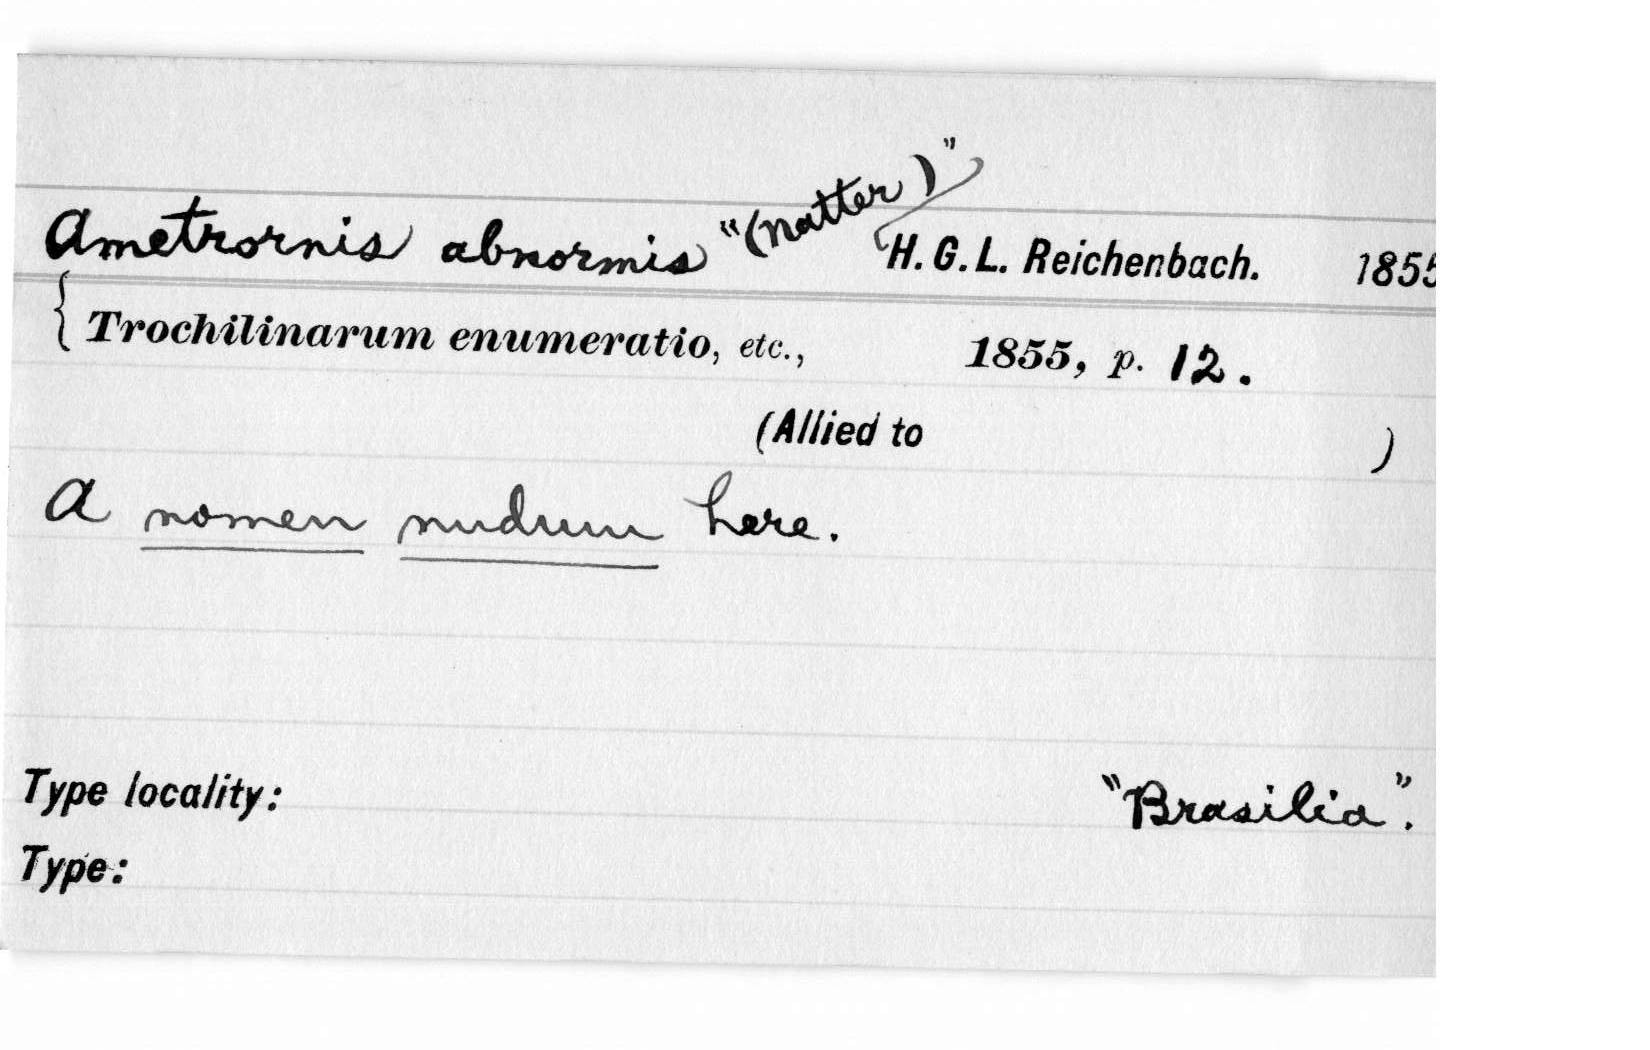 Ametrornis abnormis "(Natter)" H. G. L. Reichenbach. 1855
{ Trochilinarum enumeratio, etc., 1855, p. 12.
(Allied to )
A nomen nudum here.
Type locality: "Brasilia".
Type: